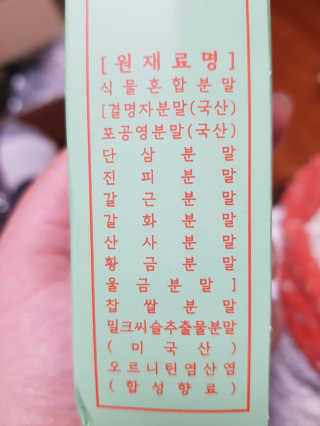 [원재료명]
식물혼합분말
[결명자분말(국산)
포공영분말(국산)
단삼분말
진피분말
갈근분말
갈화분말
산사분말
황금분말
울금분말]
찹쌀분말
밀크씨슬추출물분말
(미국산)
오르니틴염산염
(합성향료)